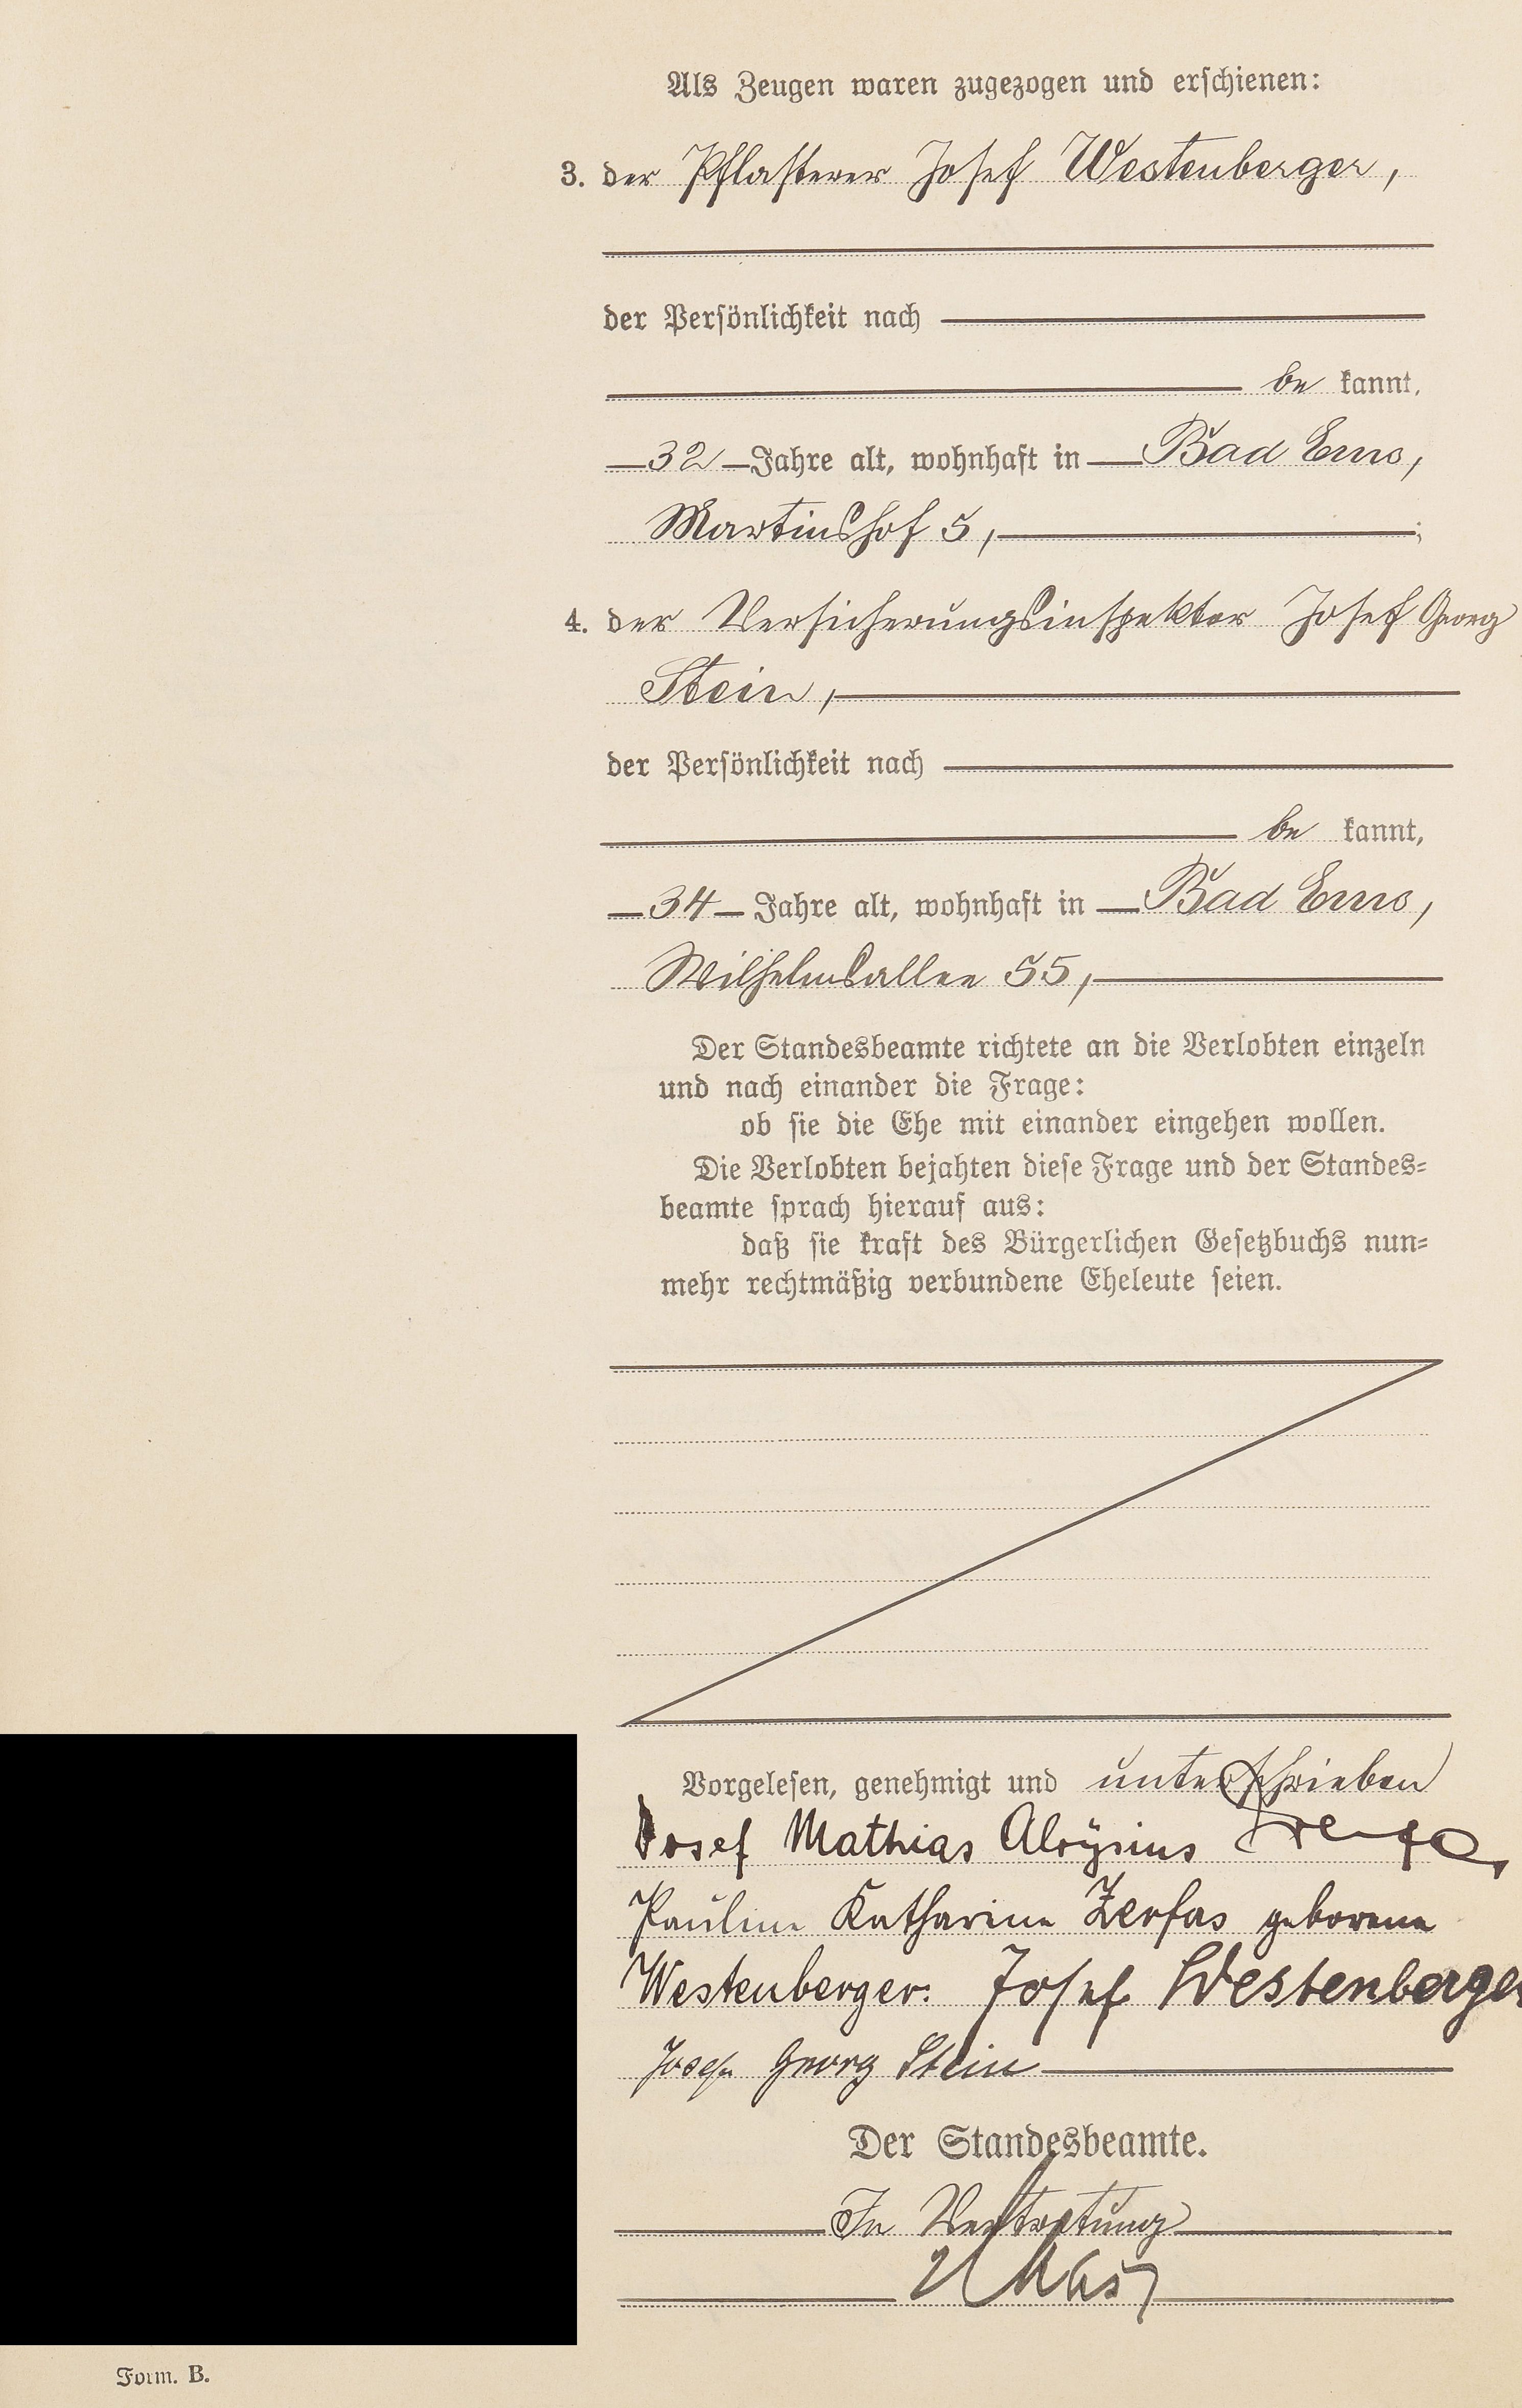 Als Zeugen waren zugezogen und erschienen:
3. der Pflasterer Josef Westenberger,
der Persönlichkeit nach
be kannt,
32 Jahre alt, wohnhaft in Bad Ems,
Martinshof 5,
4. der Versicherungsinspektor Josef Georg
Stein,
der Persönlichkeit nach
be kannt,
34 Jahre alt, wohnhaft in Bad Ems,
Wilhelmsallee 55,
Der Standesbeamte richtete an die Verlobten einzeln
und nach einander die Frage:
ob sie die Ehe mit einander eingehen wollen.
Die Verlobten bejahten diese Frage und der Standes-
beamte sprach hierauf aus:
daß sie kraft des Bürgerlichen Gesetzbuchs nun-
mehr rechtmäßig verbundene Eheleute seien.
Vorgelesen, genehmigt und unterschrieben
Josef Mathias Aloÿsius
Pauline Katharina Zerfas geborene
Westenberger. Josef Westenberger
Josef Georg Stein
Der Standesbeamte.
In Vertretung
Form. B.